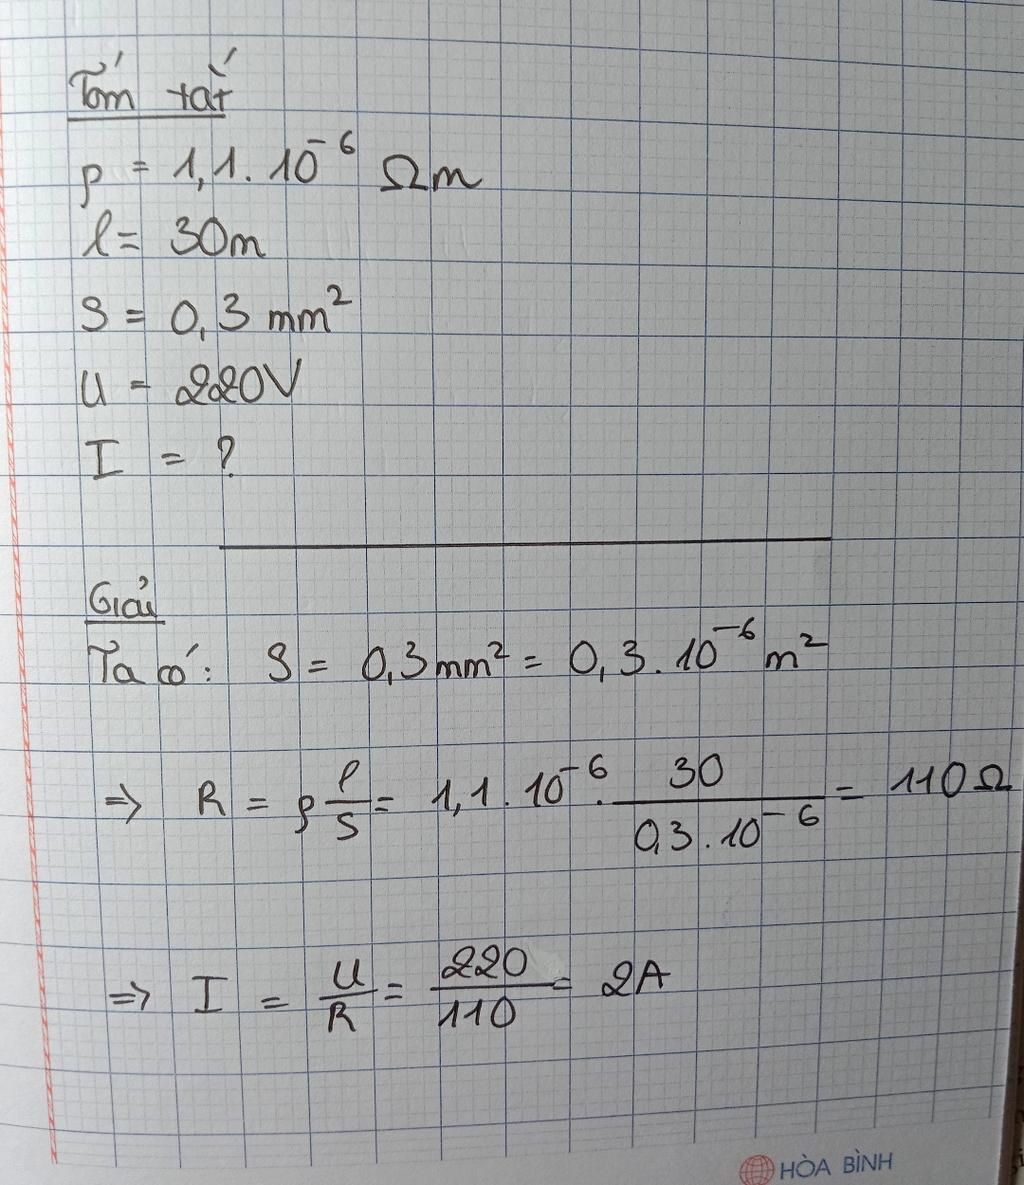 Tóm tắt
ρ = 1,1.10⁻⁶ Ωm
l = 30m
S = 0,3 mm²
U = 220V
I = ?
Giải
Ta có: S = 0,3mm² = 0,3.10⁻⁶ m²
=> R = ρ l/S = 1,1.10⁻⁶ . 30/(0,3.10⁻⁶) = 110Ω
=> I = U/R = 220/110 = 2A
HÒA BÌNH